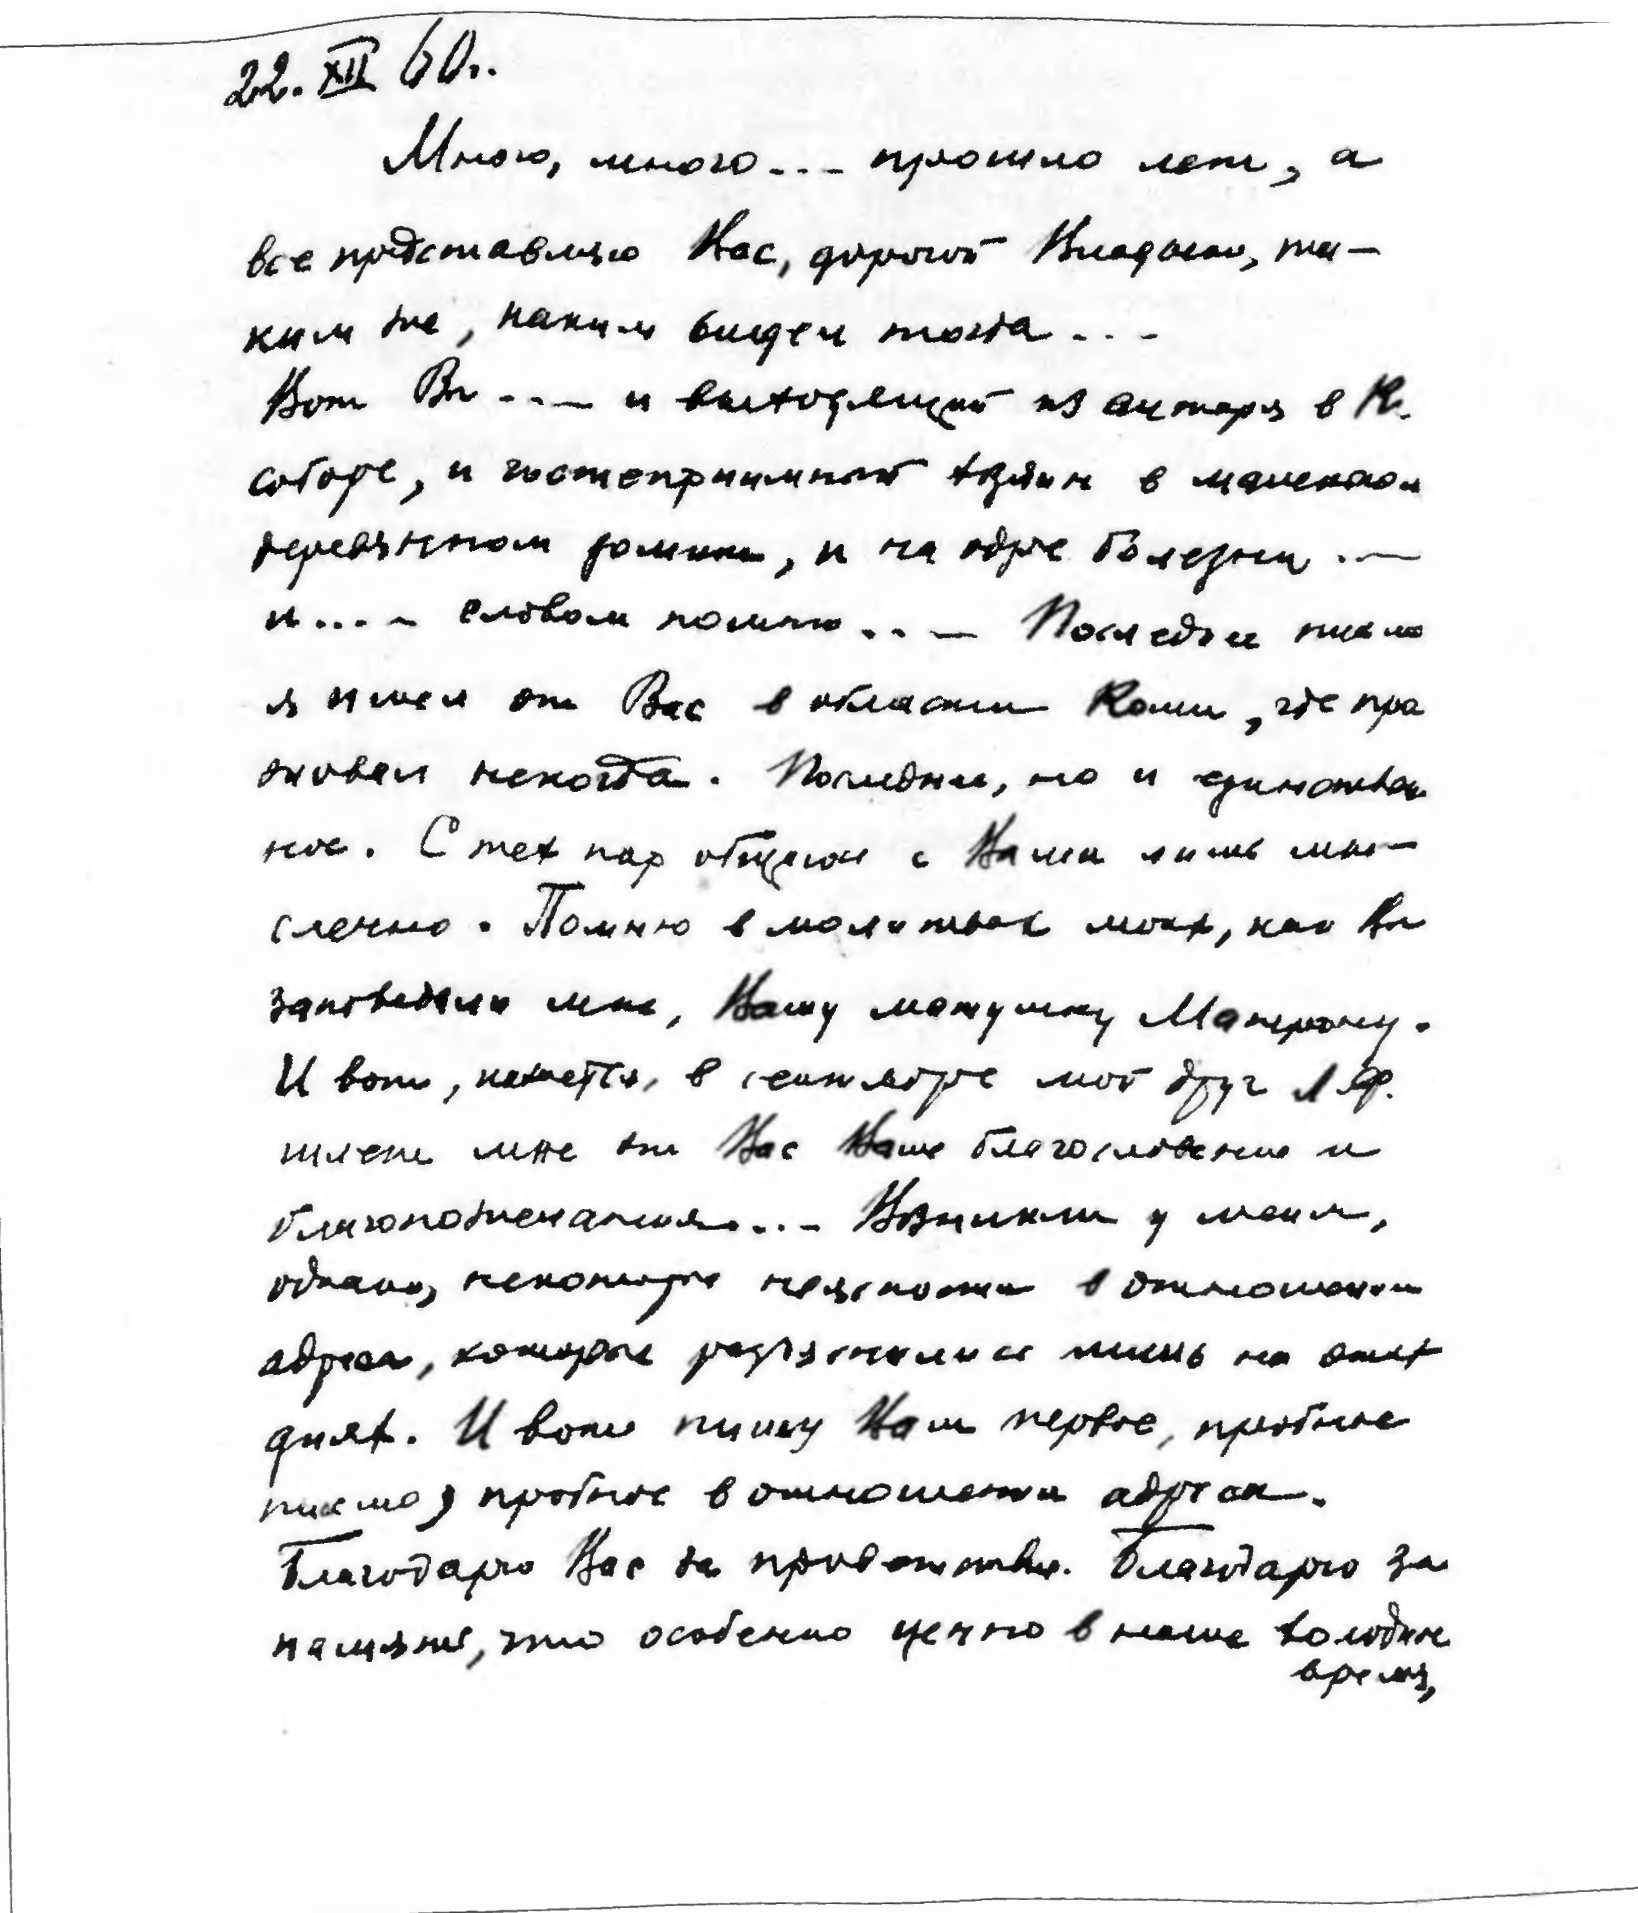 22. XII 60 г.
Много, много... прошло лет, а
все представляю Вас, дорогой Владыко, та-
ким же, каким видел тогда...
Вот Вы... и выходящий из алтаря в К.
соборе, и гостеприимный хозяин в маленьком
деревянном домике, и на одре болезни...
и.... словом помню... Последнее письмо
я имел от Вас в области Коми, где про
живал некогда. Последнее, но и единствен
ное. С тех пор общаюсь с Вами лишь мы-
сленно. Помню в молитвах моих, как Вы
заповедали мне, Вашу матушку Матрону.
И вот, кажется, в сентябре мой друг
шлет мне от Вас Ваше благословение и
благопожелания... Возникли у меня,
однако, некоторые неясности в отношении
адреса, которые разъяснились лишь на этих
днях. И вот пишу Вам первое, пробное
письмо, пробное в отношении адреса.
Благодарю Вас за приветствие. Благодарю за
память, что особенно ценно в наше холодное
время,